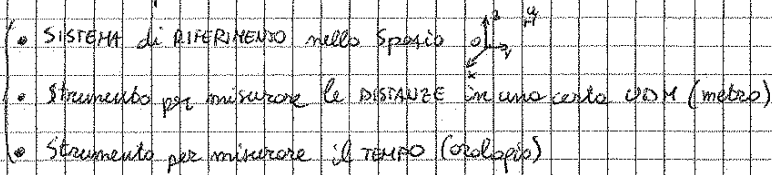 • SISTEMA di RIFERIMENTO nello Spazio z O y x
• Strumento per misurare le DISTANZE in una certa UDM (metro)
• Strumento per misurare il TEMPO (orologio)